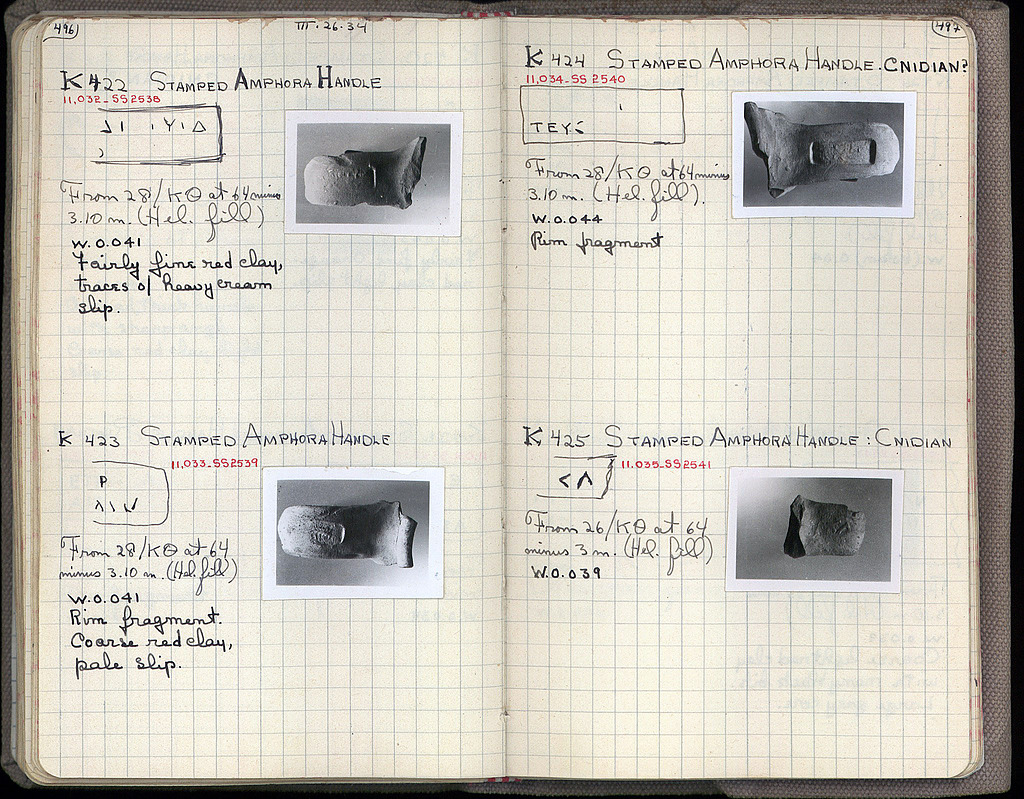 496
III.26.34
K 422 STAMPED AMPHORA HANDLE
11,032_SS2538
From 28/ΚΘ at 64 minus
3.10 m. (Hel. fill)
W. 0.041
Fairly fine red clay,
traces of heavy cream
slip.
K 423 STAMPED AMPHORA HANDLE
11,033_SS2539
P
From 28/ΚΘ at 64
minus 3.10 m. (Hel. fill)
W. 0.041
Rim fragment.
Coarse red clay,
pale slip.
497
K 424 STAMPED AMPHORA HANDLE. CNIDIAN?
11,034_SS 2540
ΤΕΥΣ
From 28/ΚΘ at 64 minus
3.10 m. (Hel. fill).
W. 0.044
Rim fragment
K 425 STAMPED AMPHORA HANDLE : CNIDIAN
11.035_SS2541
<Λ
From 26/ΚΘ at 64
minus 3 m. (Hel. fill)
W. 0.039